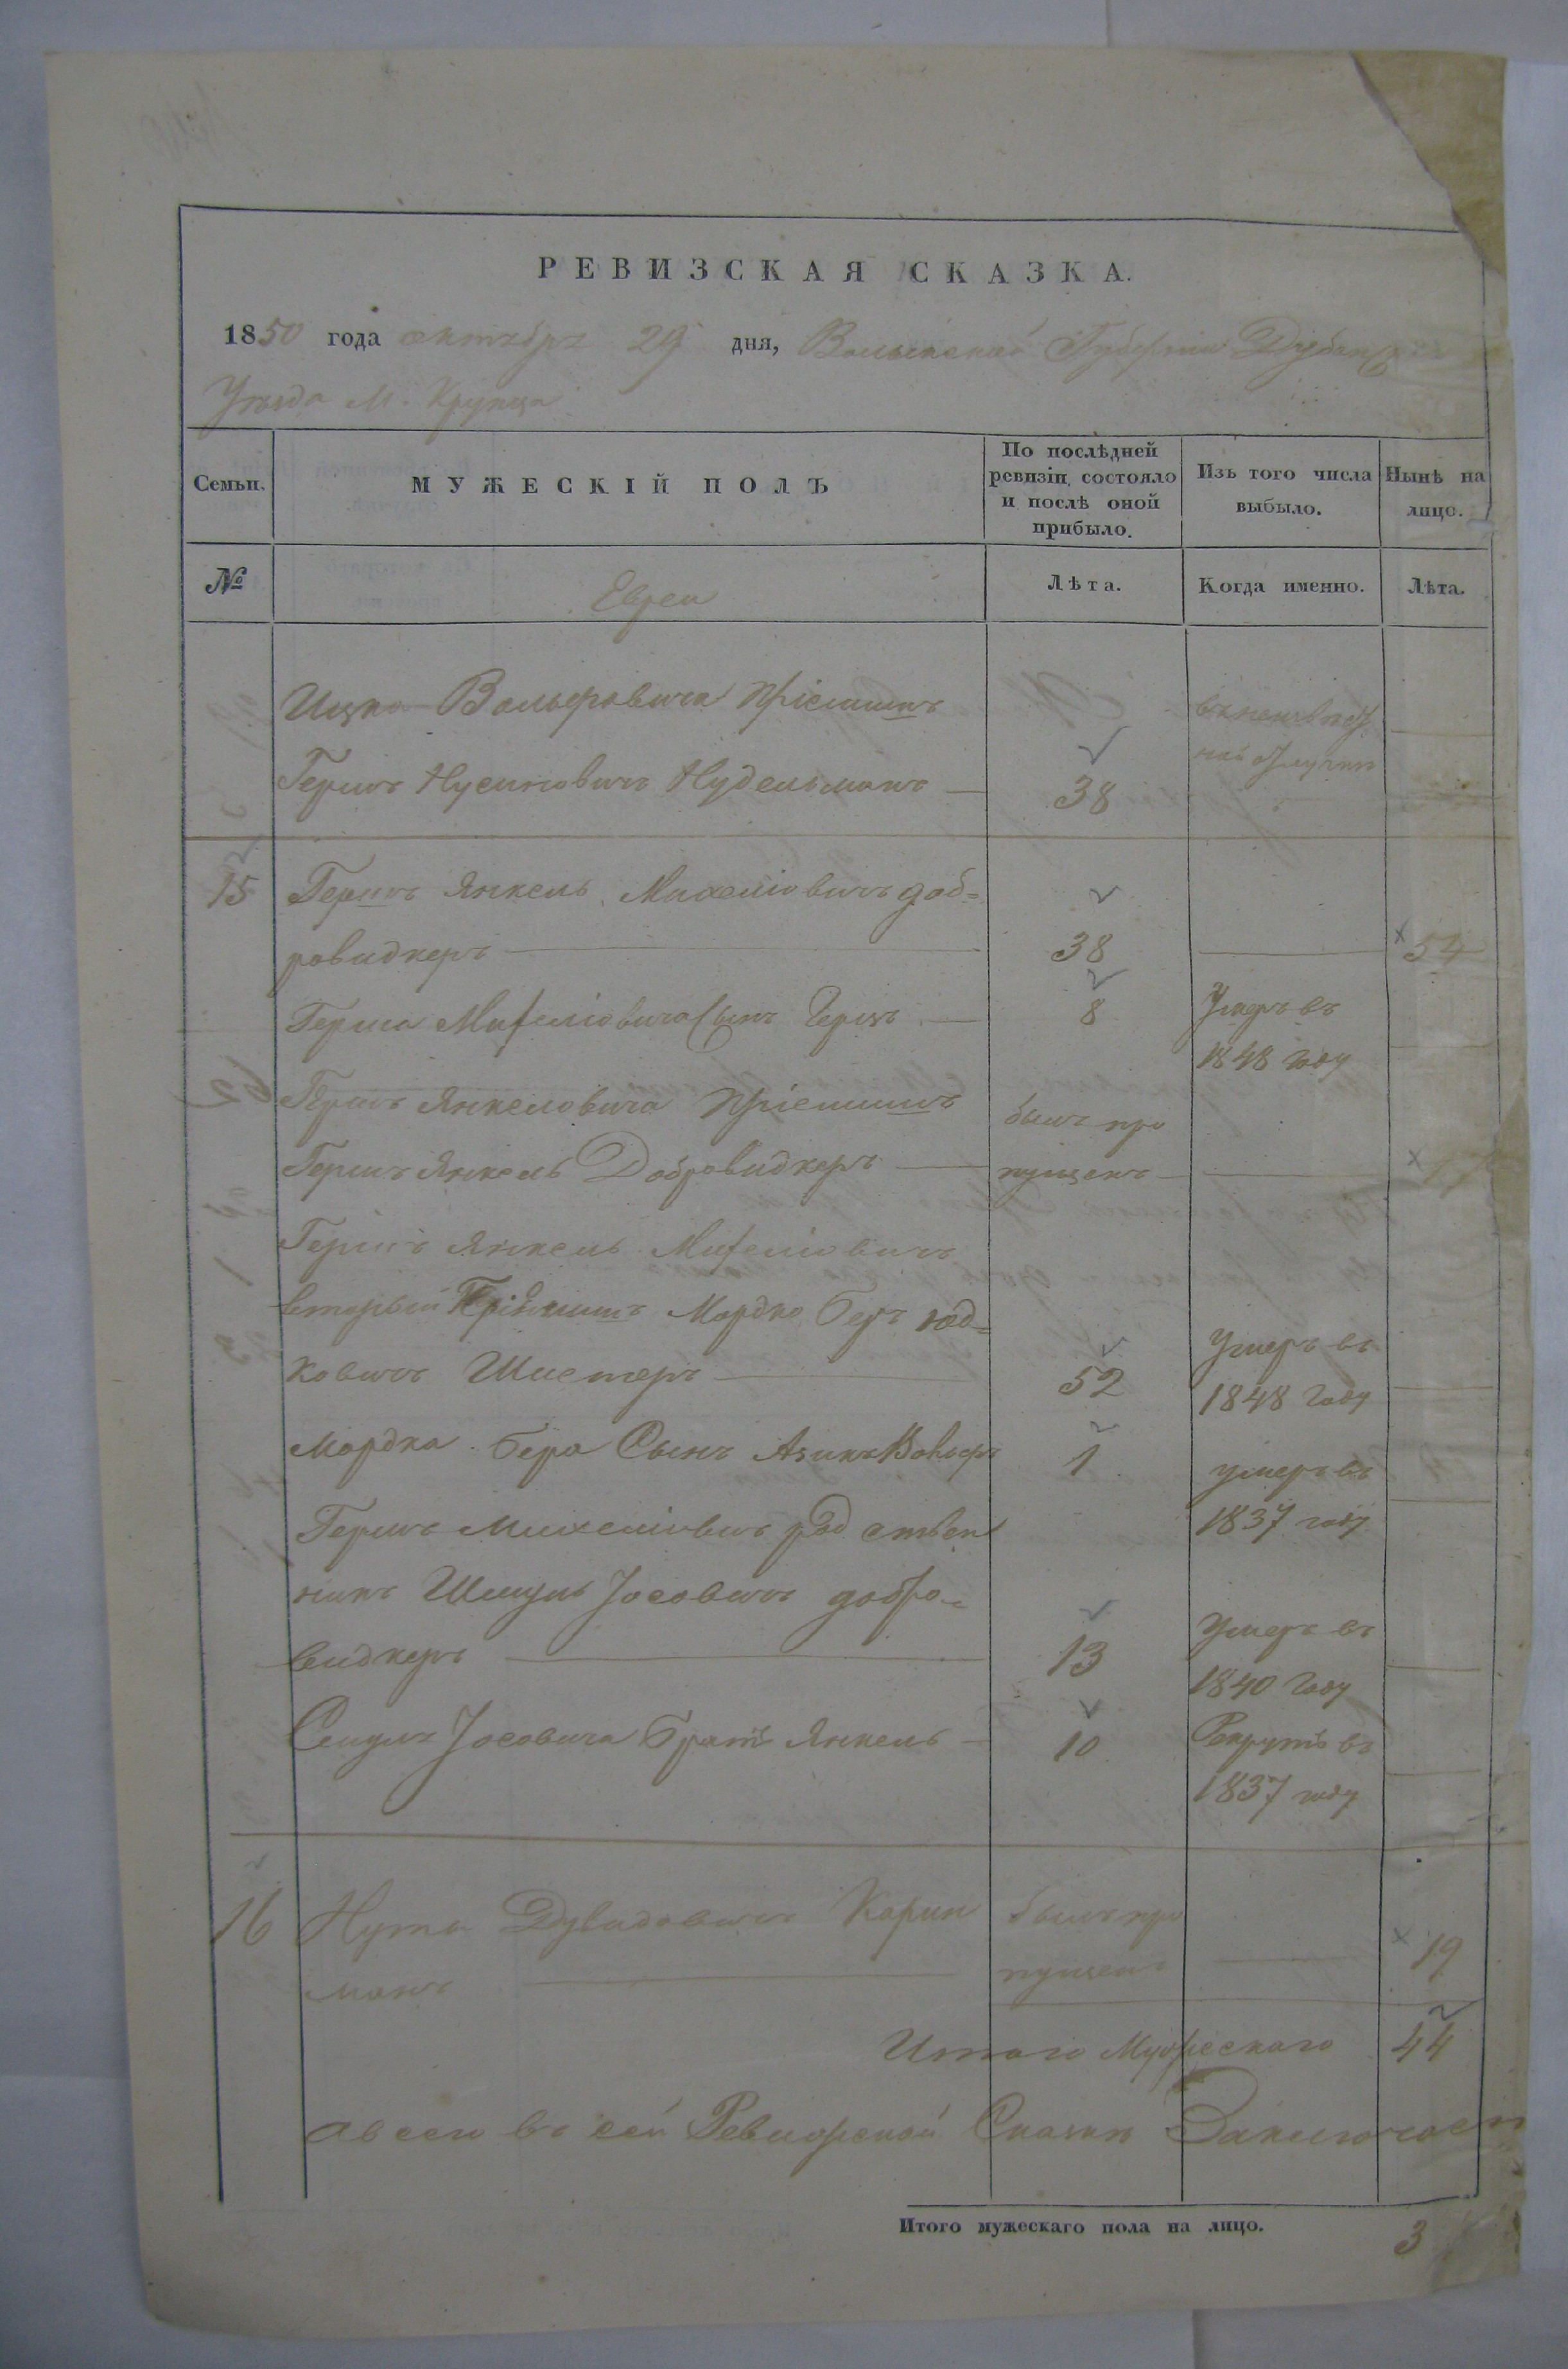 РЕВИЗСКАЯ СКАЗКА.
1850 года октября 29 дня, Волынской Губерніи Дубенс
Уѣзда М. Крупца
Семьи.
МУЖЕСКІЙ ПОЛЪ
По послѣдней ревизіи состояло и послѣ оной прибыло.
Изъ того числа выбыло.
Нынѣ на лицо.
№
Евреи
Лѣта.
Когда именно.
Лѣта.
Ицка Вольфовича Пріемышъ
Гершъ Нусиновичъ Нудельманъ 38
15 Гершъ Янкель Михеліовичъ доб=
ровидкеръ 38 54
Герша Михеліовича Сынъ 8 Умеръ въ
1848 году
Гершъ Янкеловича Пріемышъ былъ про
Гершъ Янкель Добровидкеръ пущенъ
Гершъ Янкель Михеліовичъ
вторый Пріемышъ Мордко Беръ
ковичъ Шистеръ 52 Умеръ въ
1848 году
Мордка Бера Сынъ Вольфъ 1 умеръ въ
Гершъ Михеліовичъ родствен 1837 году
никъ Шмуль Іосовичъ добро=
видкеръ 13 Умеръ въ
1840 году
Іосовича Братъ Янкель 10 Рекрутъ въ
1837 году
16 Нута Дувидовичъ Карин былъ про
манъ пущенъ 19
Итого Мужескаго 44
а всего въ сей Ревизской Сказки Заключает
Итого мужескаго пола на лицо. 3